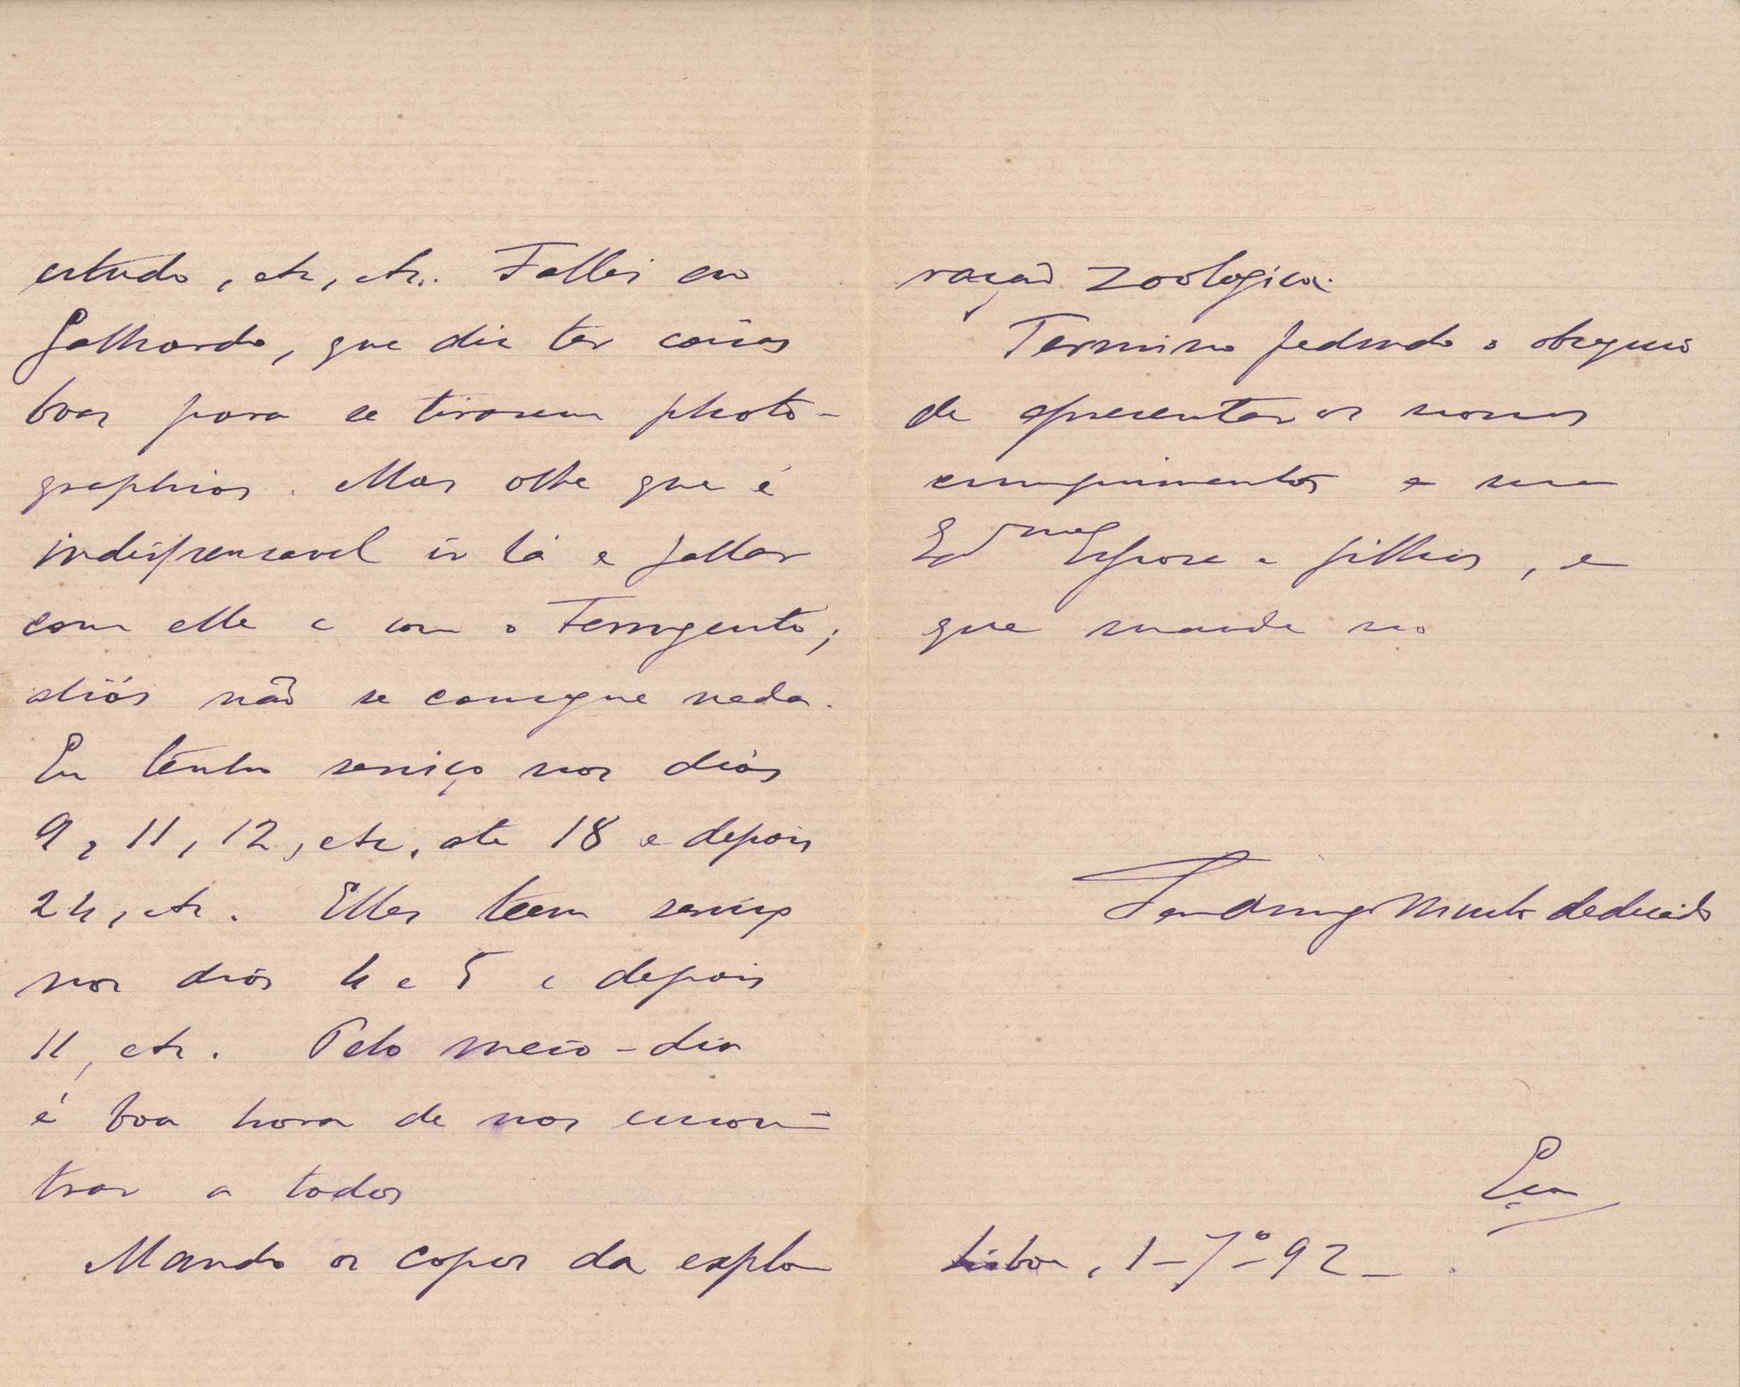 estudo, etc, etc. Fallei ao
Galhardo, que diz ter coisas
boas para se tirarem photo-
graphias. Mas olhe que é
indispensavel ir lá e fallar
com elle e com o Ferrugento;
aliás não se consegue nada.
Eu tenho serviço nos dias
9, 11, 12, etc. até 18 e depois
24, etc. Elles teem serviço
nos dias 4 e 5 e depois
11, etc. Pelo meio-dia
é boa hora de nos encon-
trar a todos
Mando os copos da explo
ração zoologica.
Termino pedindo o obsequio
de apresentar os nossos
cumprimentos a sua
Esposa e filhos, e
que mande no
muito dedicado
Lisboa, 1-7º-92-